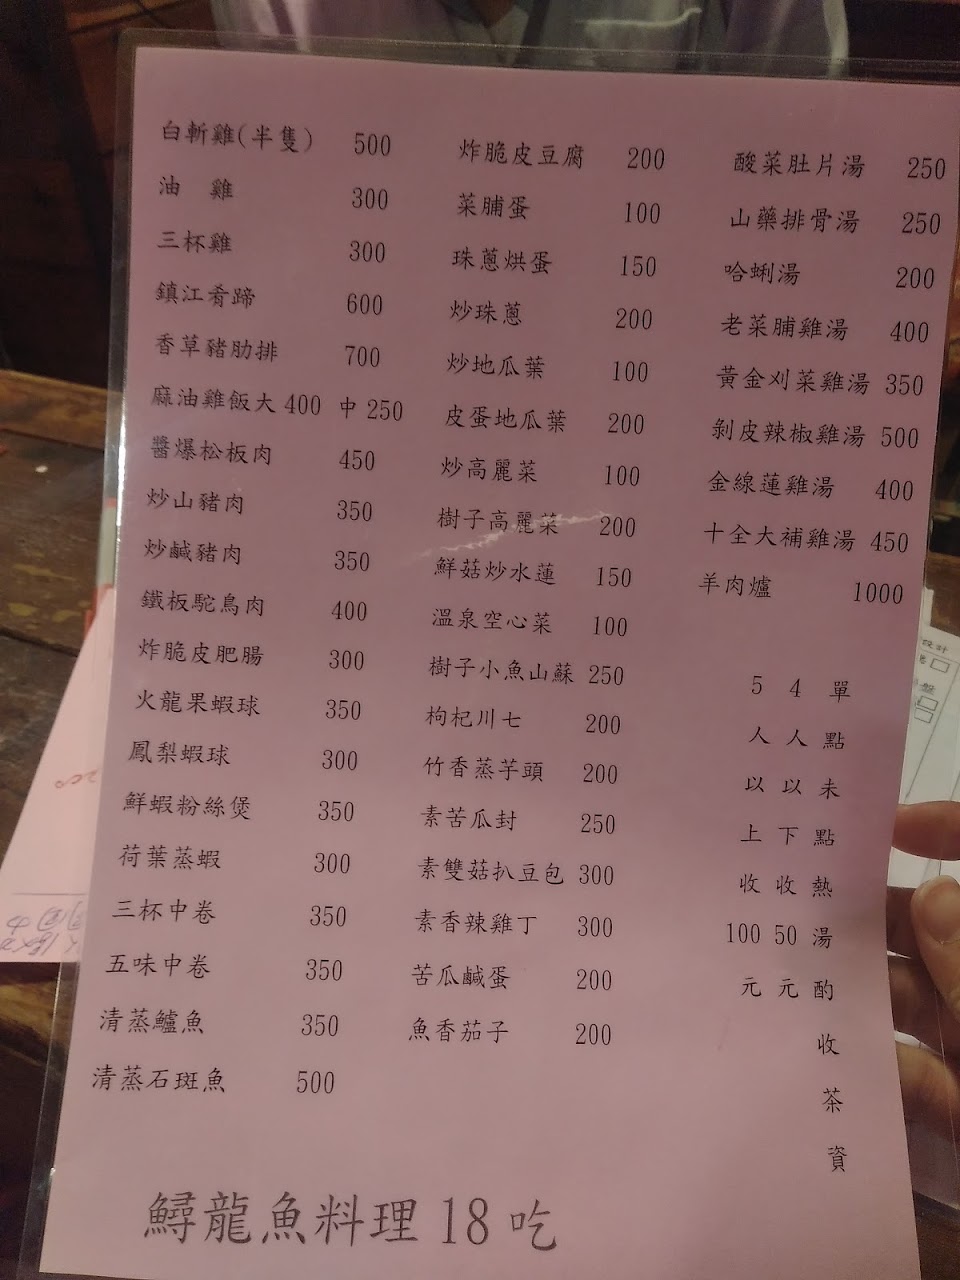 白斬雞(半隻) 500
油 雞 300
三杯雞 300
鎮江肴蹄 600
香草豬肋排 700
麻油雞飯大 400 中 250
醬爆松板肉 450
炒山豬肉 350
炒鹹豬肉 350
鐵板駝鳥肉 400
炸脆皮肥腸 300
火龍果蝦球 350
鳳梨蝦球 300
鮮蝦粉絲煲 350
荷葉蒸蝦 300
三杯中卷 350
五味中卷 350
清蒸鱸魚 350
清蒸石斑魚 500
炸脆皮豆腐 200
菜脯蛋 100
珠蔥烘蛋 150
炒珠蔥 200
炒地瓜葉 100
皮蛋地瓜葉 200
炒高麗菜 100
樹子高麗菜 200
鮮菇炒水蓮 150
溫泉空心菜 100
樹子小魚山蘇 250
枸杞川七 200
竹香蒸芋頭 200
素苦瓜封 250
素雙菇扒豆包 300
素香辣雞丁 300
苦瓜鹹蛋 200
魚香茄子 200
酸菜肚片湯 250
山藥排骨湯 250
哈蜊湯 200
老菜脯雞湯 400
黃金刈菜雞湯 350
剝皮辣椒雞湯 500
金線蓮雞湯 400
十全大補雞湯 450
羊肉爐 1000
單點未點熱湯酌收茶資
4人以下收50元
5人以上收100元
鱘龍魚料理 18 吃
設計